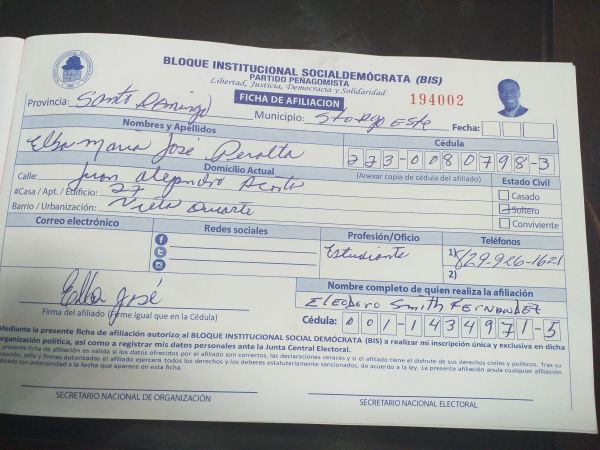 BLOQUE INSTITUCIONAL SOCIALDEMÓCRATA (BIS)
PARTIDO PEÑAGOMISTA
Libertad, Justicia, Democracia y Solidaridad
FICHA DE AFILIACION
194002
Provincia: Santo Domingo Municipio: Sto Dgo Este Fecha:
Nombres y Apellidos Cédula
Elba Maria José Peralta 223-0080798-3
Domicilio Actual (Anexar copia de cédula del afiliado) Estado Civil
Calle: Juan Alejandro Acosta Casado
#Casa / Apt. / Edificio: 27 Soltero
Barrio / Urbanización: Vieta Duarte Conviviente
Correo electrónico Redes sociales Profesión/Oficio Teléfonos
Estudiante 1) 829-926-1621
2)
Elba José
Firma del afiliado (Firme igual que en la Cédula)
Nombre completo de quien realiza la afiliación
Eleodoro Smith Fernandez
Cédula: 001-1434971-5
Mediante la presente ficha de afiliación autorizo al BLOQUE INSTITUCIONAL SOCIAL DEMÓCRATA (BIS) a realizar mi inscripción única y exclusiva en dicha
organización política, así como a registrar mis datos personales ante la Junta Central Electoral.
presente ficha de afiliación es valida si los datos ofrecidos por el afiliado son correctos, las declaraciones veraces y si el afiliado tiene el disfrute de sus derechos civiles y políticos. Tras su
sello y firmas autorizadas el afiliado ejercerá todos los derechos y los deberes estatutariamente sancionados, de acuerdo a la ley. La presente afiliación anula cualquier afiliación
con anterioridad a la fecha que aparece en esta ficha.
SECRETARIO NACIONAL DE ORGANIZACIÓN SECRETARIO NACIONAL ELECTORAL